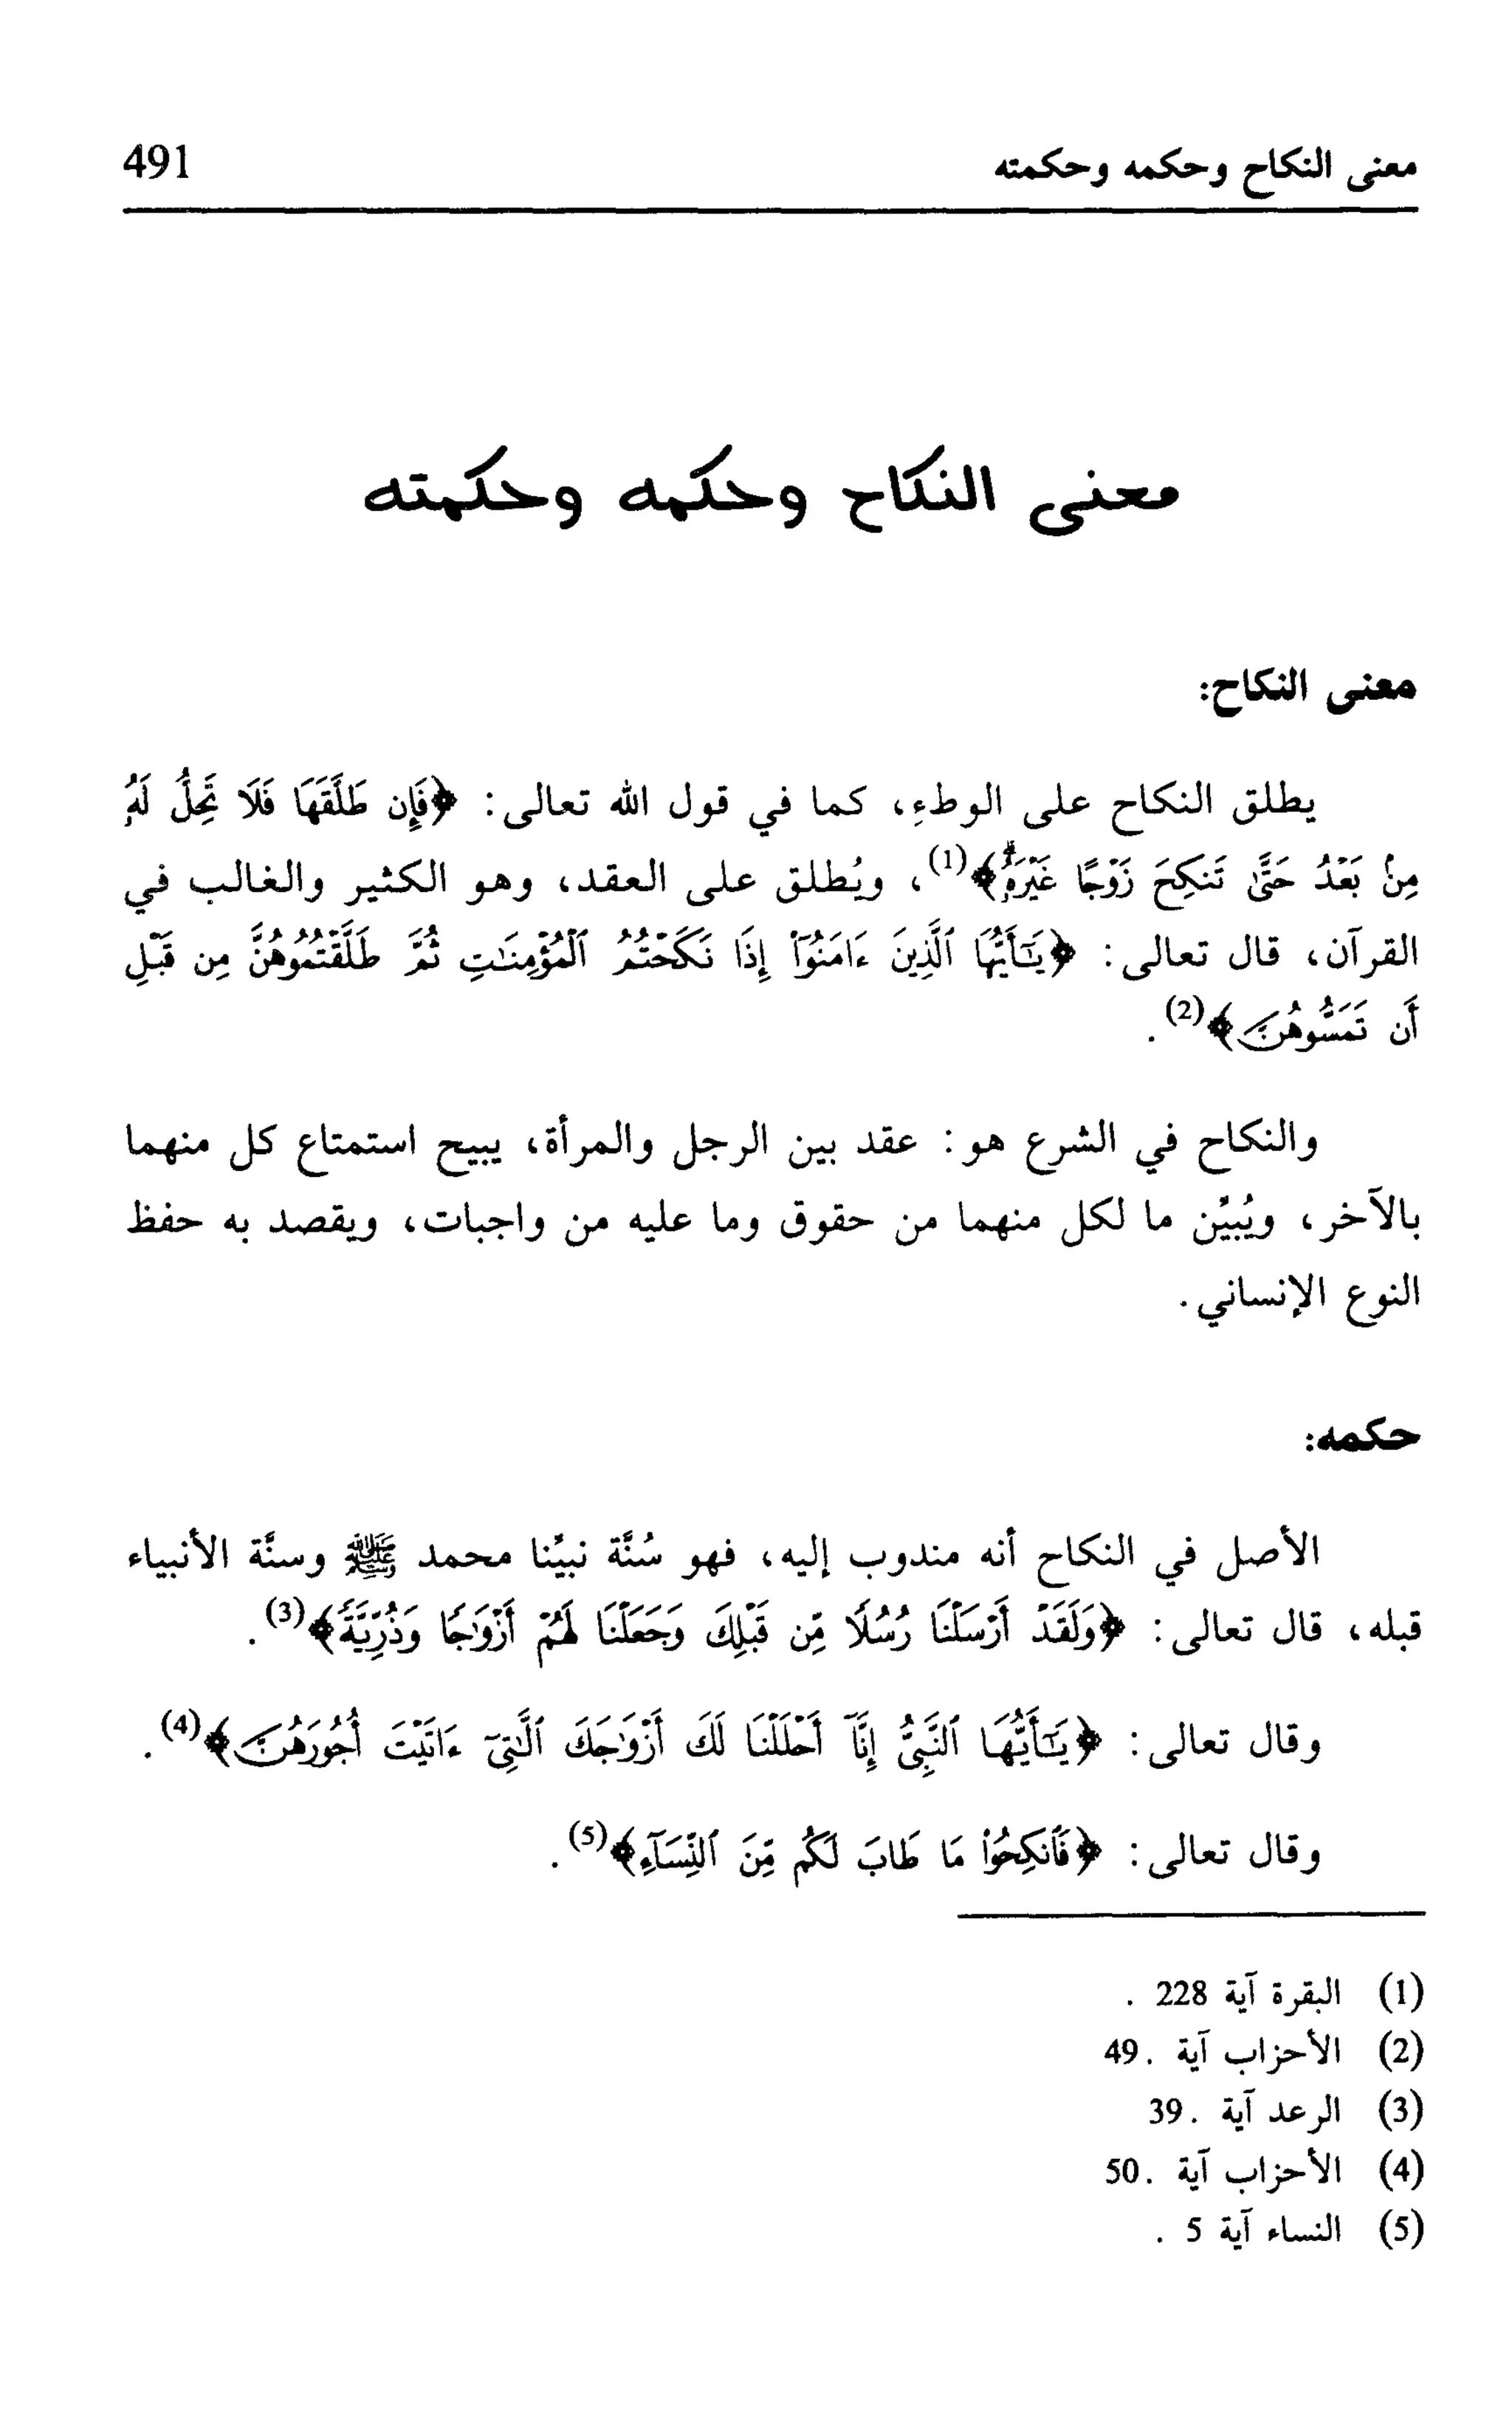 معنى النكاح وحكمه وحكمته 491
معنى النكاح وحكمه وحكمته
معنى النكاح:
يطلق النكاح على الوطء، كما في قول الله تعالى: ﴿فَإِن طَلَّقَهَا فَلَا تَحِلُّ لَهُۥ
مِنۢ بَعْدُ حَتَّىٰ تَنكِحَ زَوْجًا غَيْرَهُۥ﴾(1)، ويُطلق على العقد، وهو الكثير والغالب في
القرآن، قال تعالى: ﴿يَـٰٓأَيُّهَا ٱلَّذِينَ ءَامَنُوٓا۟ إِذَا نَكَحْتُمُ ٱلْمُؤْمِنَـٰتِ ثُمَّ طَلَّقْتُمُوهُنَّ مِن قَبْلِ
أَن تَمَسُّوهُنَّ﴾(2).
والنكاح في الشرع هو: عقد بين الرجل والمرأة، يبيح استمتاع كل منهما
بالآخر، ويُبيِّن ما لكل منهما من حقوق وما عليه من واجبات، ويقصد به حفظ
النوع الإنساني.
حكمه:
الأصل في النكاح أنه مندوب إليه، فهو سُنَّة نبيِّنا محمد ﷺ وسنَّة الأنبياء
قبله، قال تعالى: ﴿وَلَقَدْ أَرْسَلْنَا رُسُلًا مِّن قَبْلِكَ وَجَعَلْنَا لَهُمْ أَزْوَٰجًا وَذُرِّيَّةً﴾(3).
وقال تعالى: ﴿يَـٰٓأَيُّهَا ٱلنَّبِىُّ إِنَّآ أَحْلَلْنَا لَكَ أَزْوَٰجَكَ ٱلَّـٰتِىٓ ءَاتَيْتَ أُجُورَهُنَّ﴾(4).
وقال تعالى: ﴿فَٱنكِحُوا۟ مَا طَابَ لَكُم مِّنَ ٱلنِّسَآءِ﴾(5).
(1) البقرة آية 228 .
(2) الأحزاب آية .49
(3) الرعد آية .39
(4) الأحزاب آية .50
(5) النساء آية 5 .